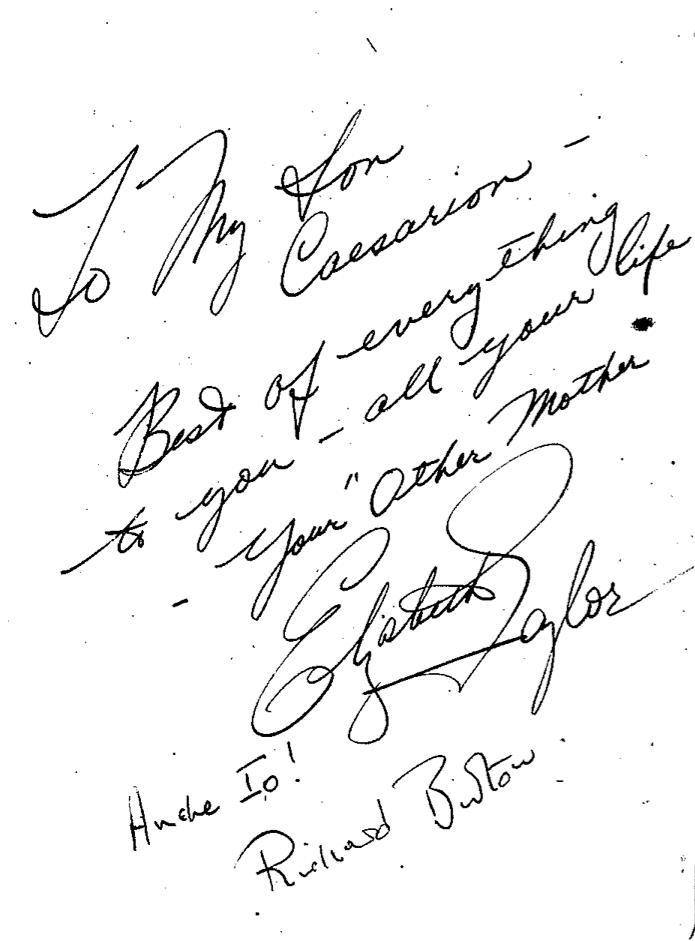 To My Son
Caesarion -
Best of everything
to you - all your life
- Your "Other Mother
Elizabeth Taylor
Anche Io!
Richard Burton